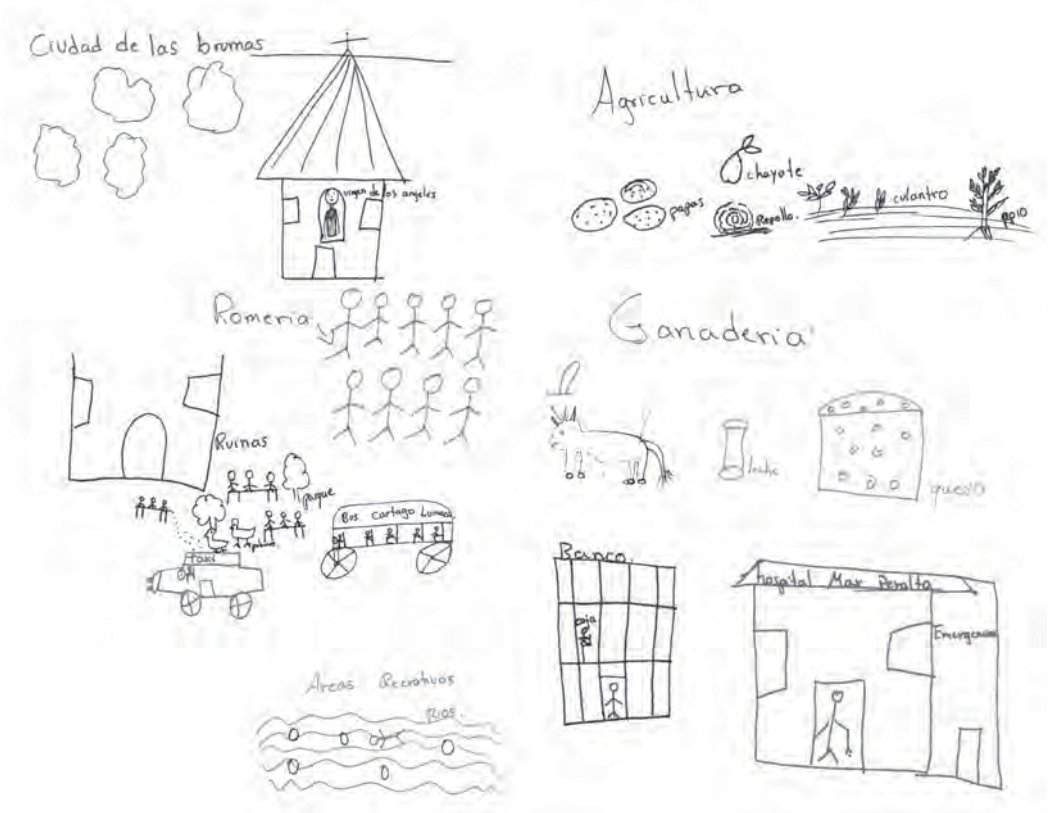 Ciudad de las brumas
virgen de los angeles
Romeria
Ruinas
parque
Taxi
Bus Cartago Lumaca
Areas Recrativos
Rios.
Agricultura
chayote
papas
Repollo.
culantro
apio
Ganaderia
leche
queso
Banco.
Caja
Hospital Max Peralta
Emergencias